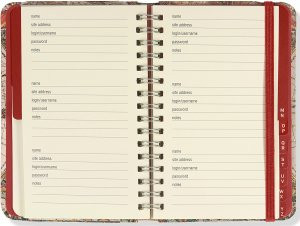 name
site address
login/username
password
notes
name
site address
login/username
password
notes
name
site address
login/username
password
notes
name
site address
login/username
password
notes
name
site address
login/username
password
notes
name
site address
login/username
password
notes
MN
OP
QR
ST
UV